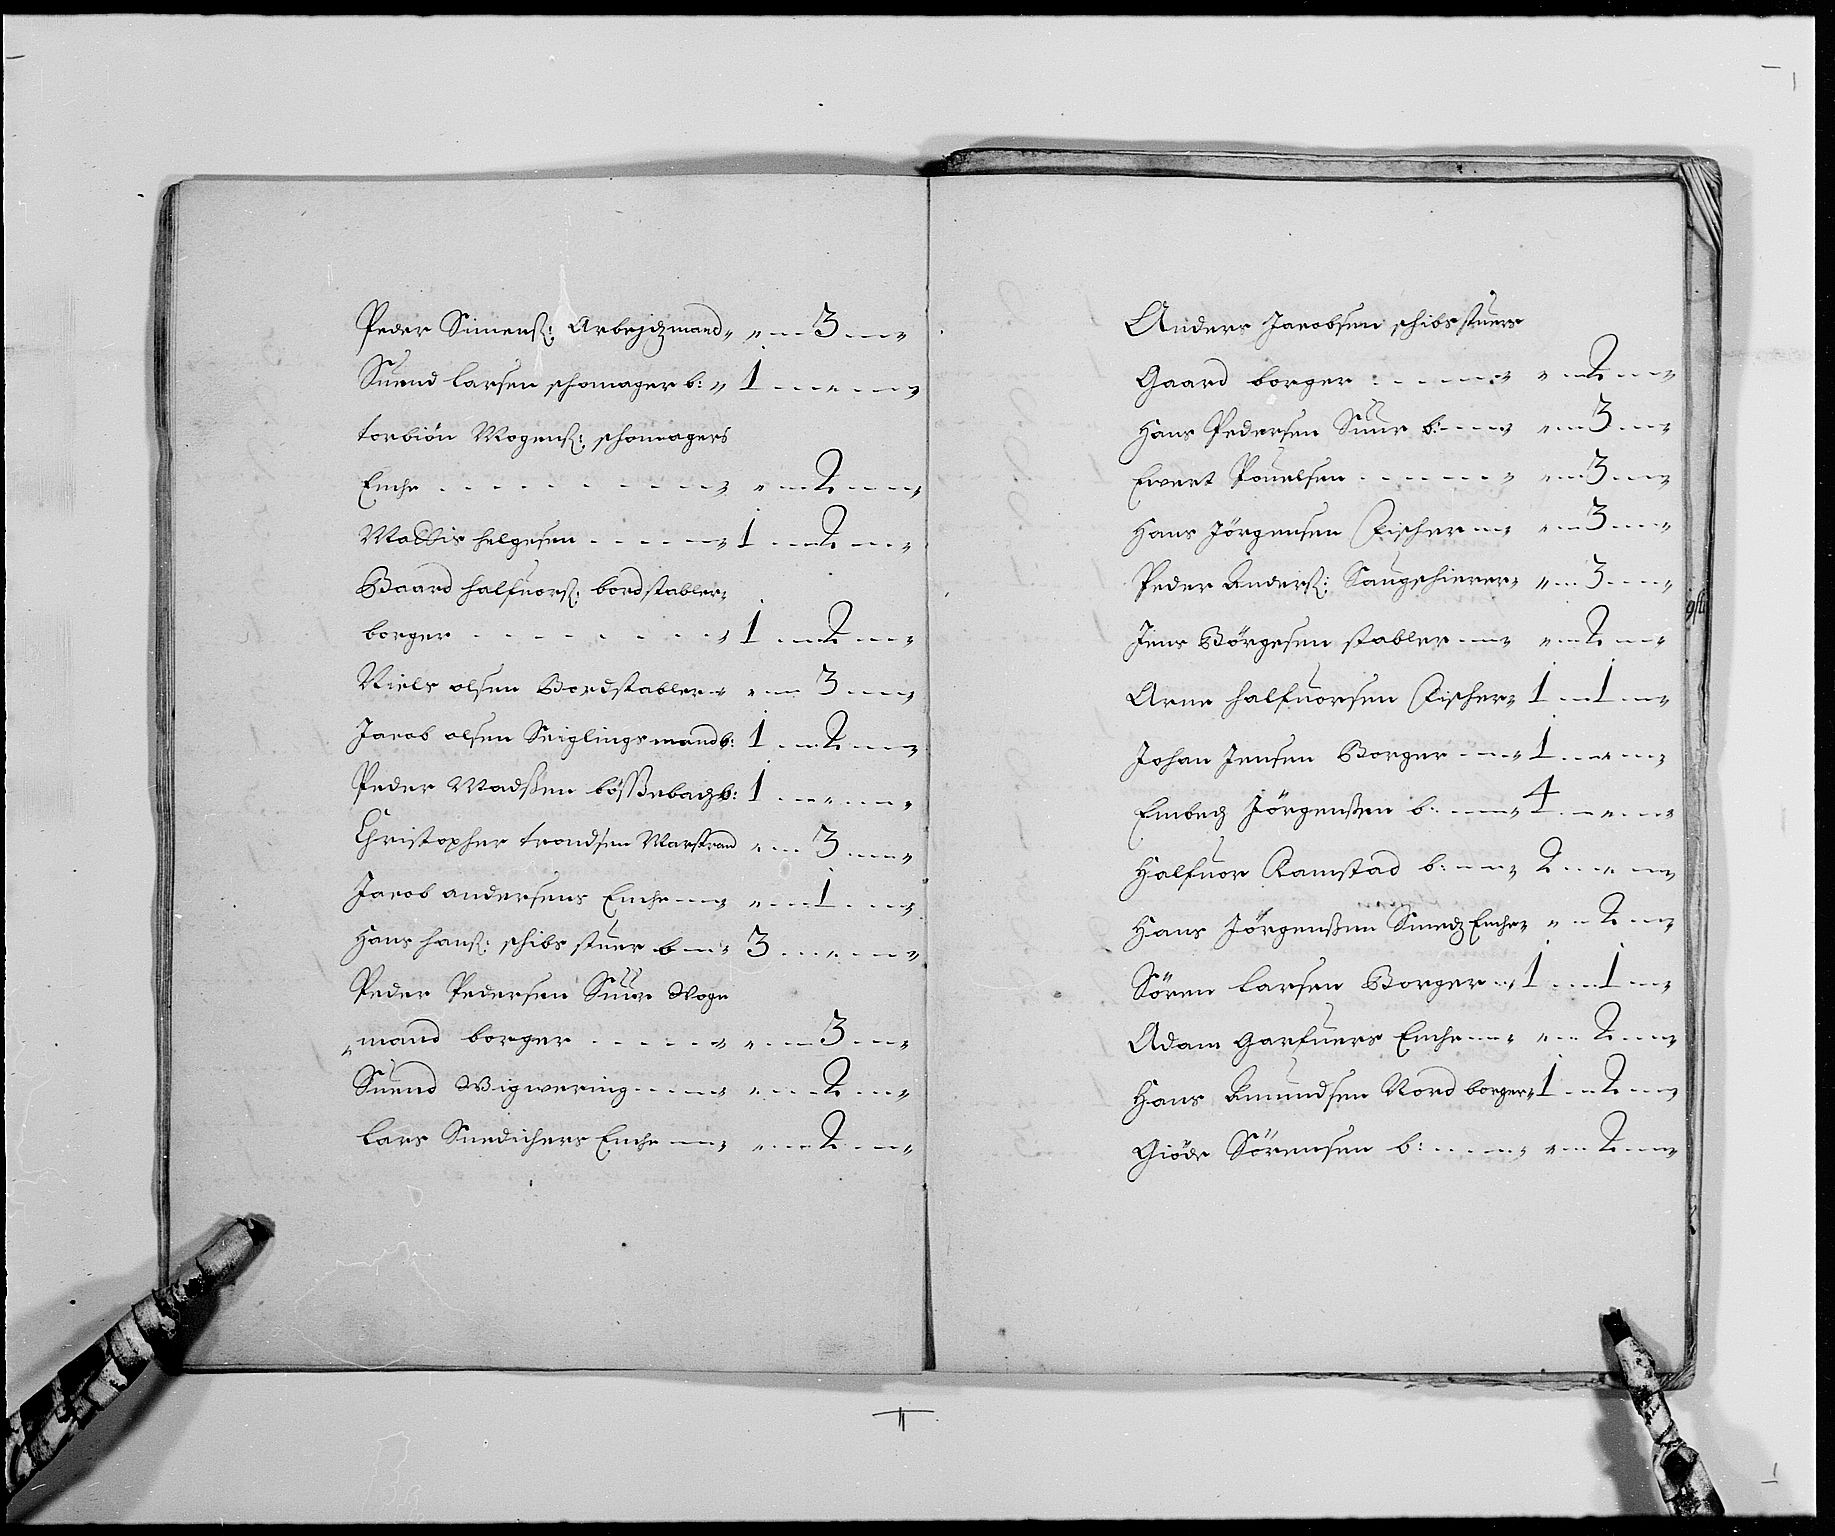 Peder Simens: Arbejdzmand " " — 3 — "
Suend larsen schomager b: " 1 — " — "
torbiön Mogens: schomagers
Enche - - - - - - - " " — 2 — "
Mattis helgesen - - - - " 1 — 2 — "
Baard halfuors: bordstabler "
borger - - - - - - " 1 — 2 — "
Niels olsen Bordstabler " " — 3 — "
Jacob olsen Seiglingsmand b: 1 — 2 — "
Peder Madsßen bösßebach b: 1 — " — "
Christopher trondsen Marstrand " — 3 — "
Jacob andersens Enche — " " — 1 — "
Hans hans: schibs stuer b — " 3 — " — "
Peder Pedersen Suur Vogn
mand borger - - - - " " — 3 — "
Suend Wigwering - - - " " — 2 — "
Lars Snedichers Enche — " " — 2 — "
Anders Jacobsen schibs stuers
Gaard borger - - - - " " — 2 — "
Hans Pedersen Suur b: — " " — 3 — "
Ewert Pouelsen - - - - " " — 3 — "
Hans Jörgensen Fischer — " " — 3 — "
Peder Anders: Saugschierer " " — 3 — "
Jens Börgesen stabler — " " — 2 — "
Arne halfuorsen Fischer " 1 — 1 — "
Johan Jensen Borger — " 1 — " — "
Embeq Jörgenßen b: — " 4 — " — "
Halfuor Ramstad b: — " 2 — " — "
Hans Jörgenßen Smedz Enche " " — 2 — "
Sören larsen Borger " 1 — 1 — "
Adam garfuers Enche — " " — 2 — "
Hans Amundsen Nord borger " 1 — 2 — "
Giöde Sörensen b: — " " — 2 — "